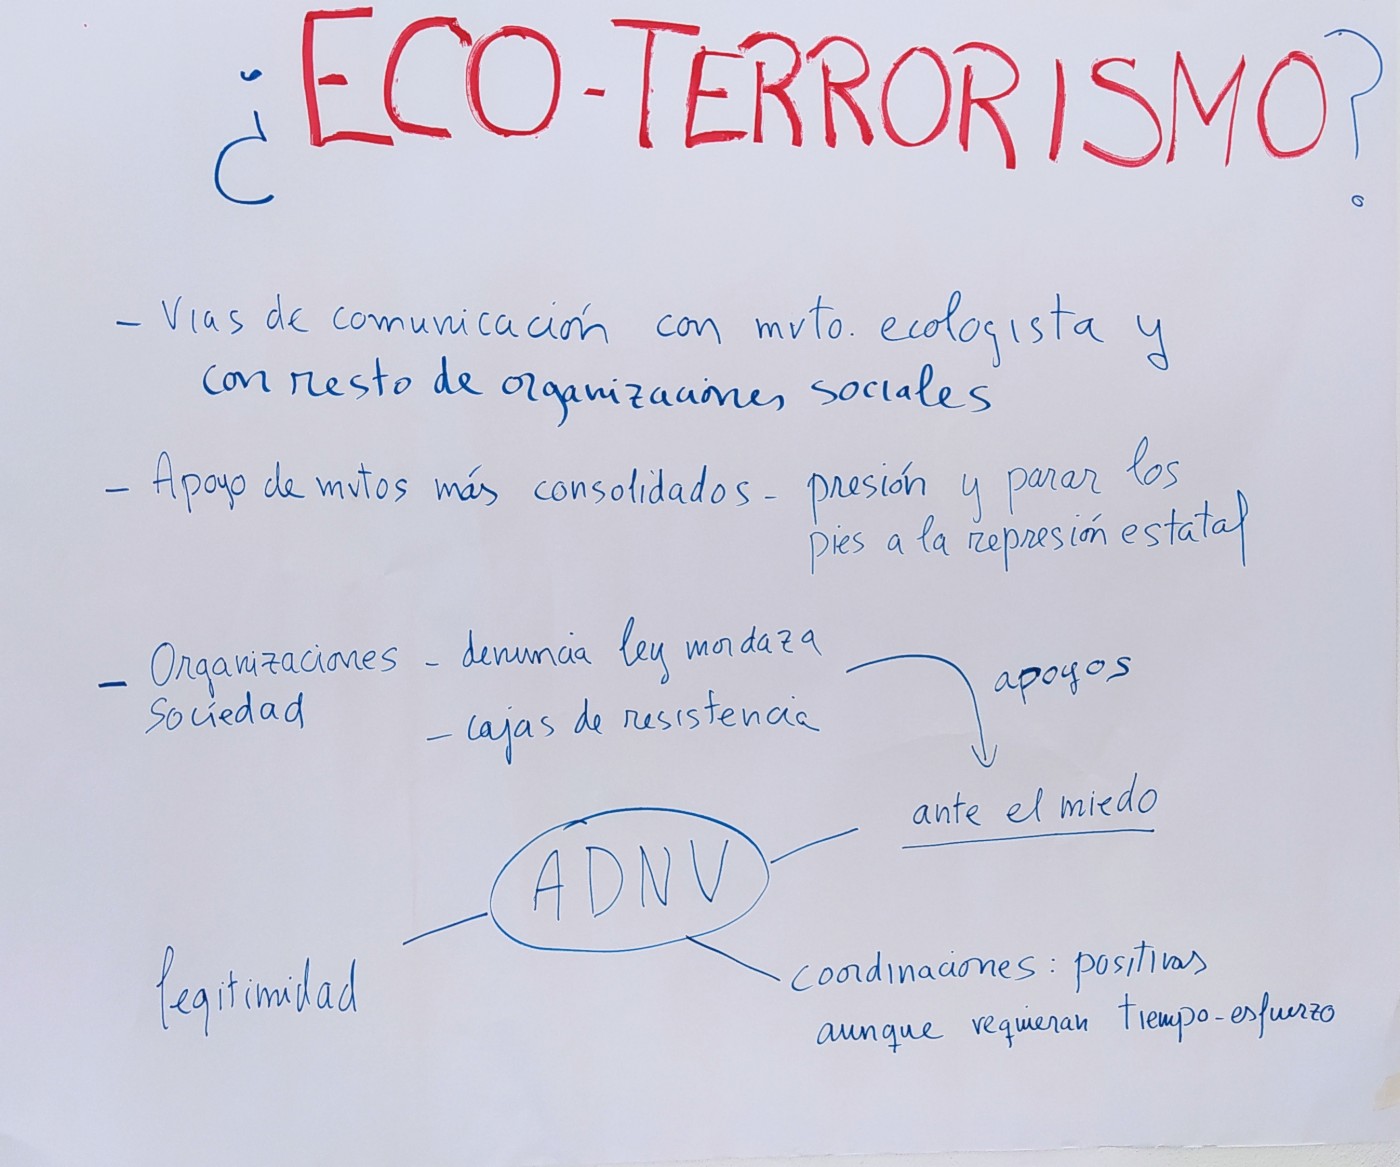 ¿ECO-TERRORISMO?
- Vías de comunicación con mvto. ecologista y
con resto de organizaciones sociales
- Apoyo de mvtos más consolidados - presión y parar los
pies a la represión estatal
- Organizaciones - denuncia ley mordaza
sociedad
- cajas de resistencia
apoyos
ante el miedo
ADNV
legitimidad
coordinaciones: positivas
aunque requieran tiempo-esfuerzo